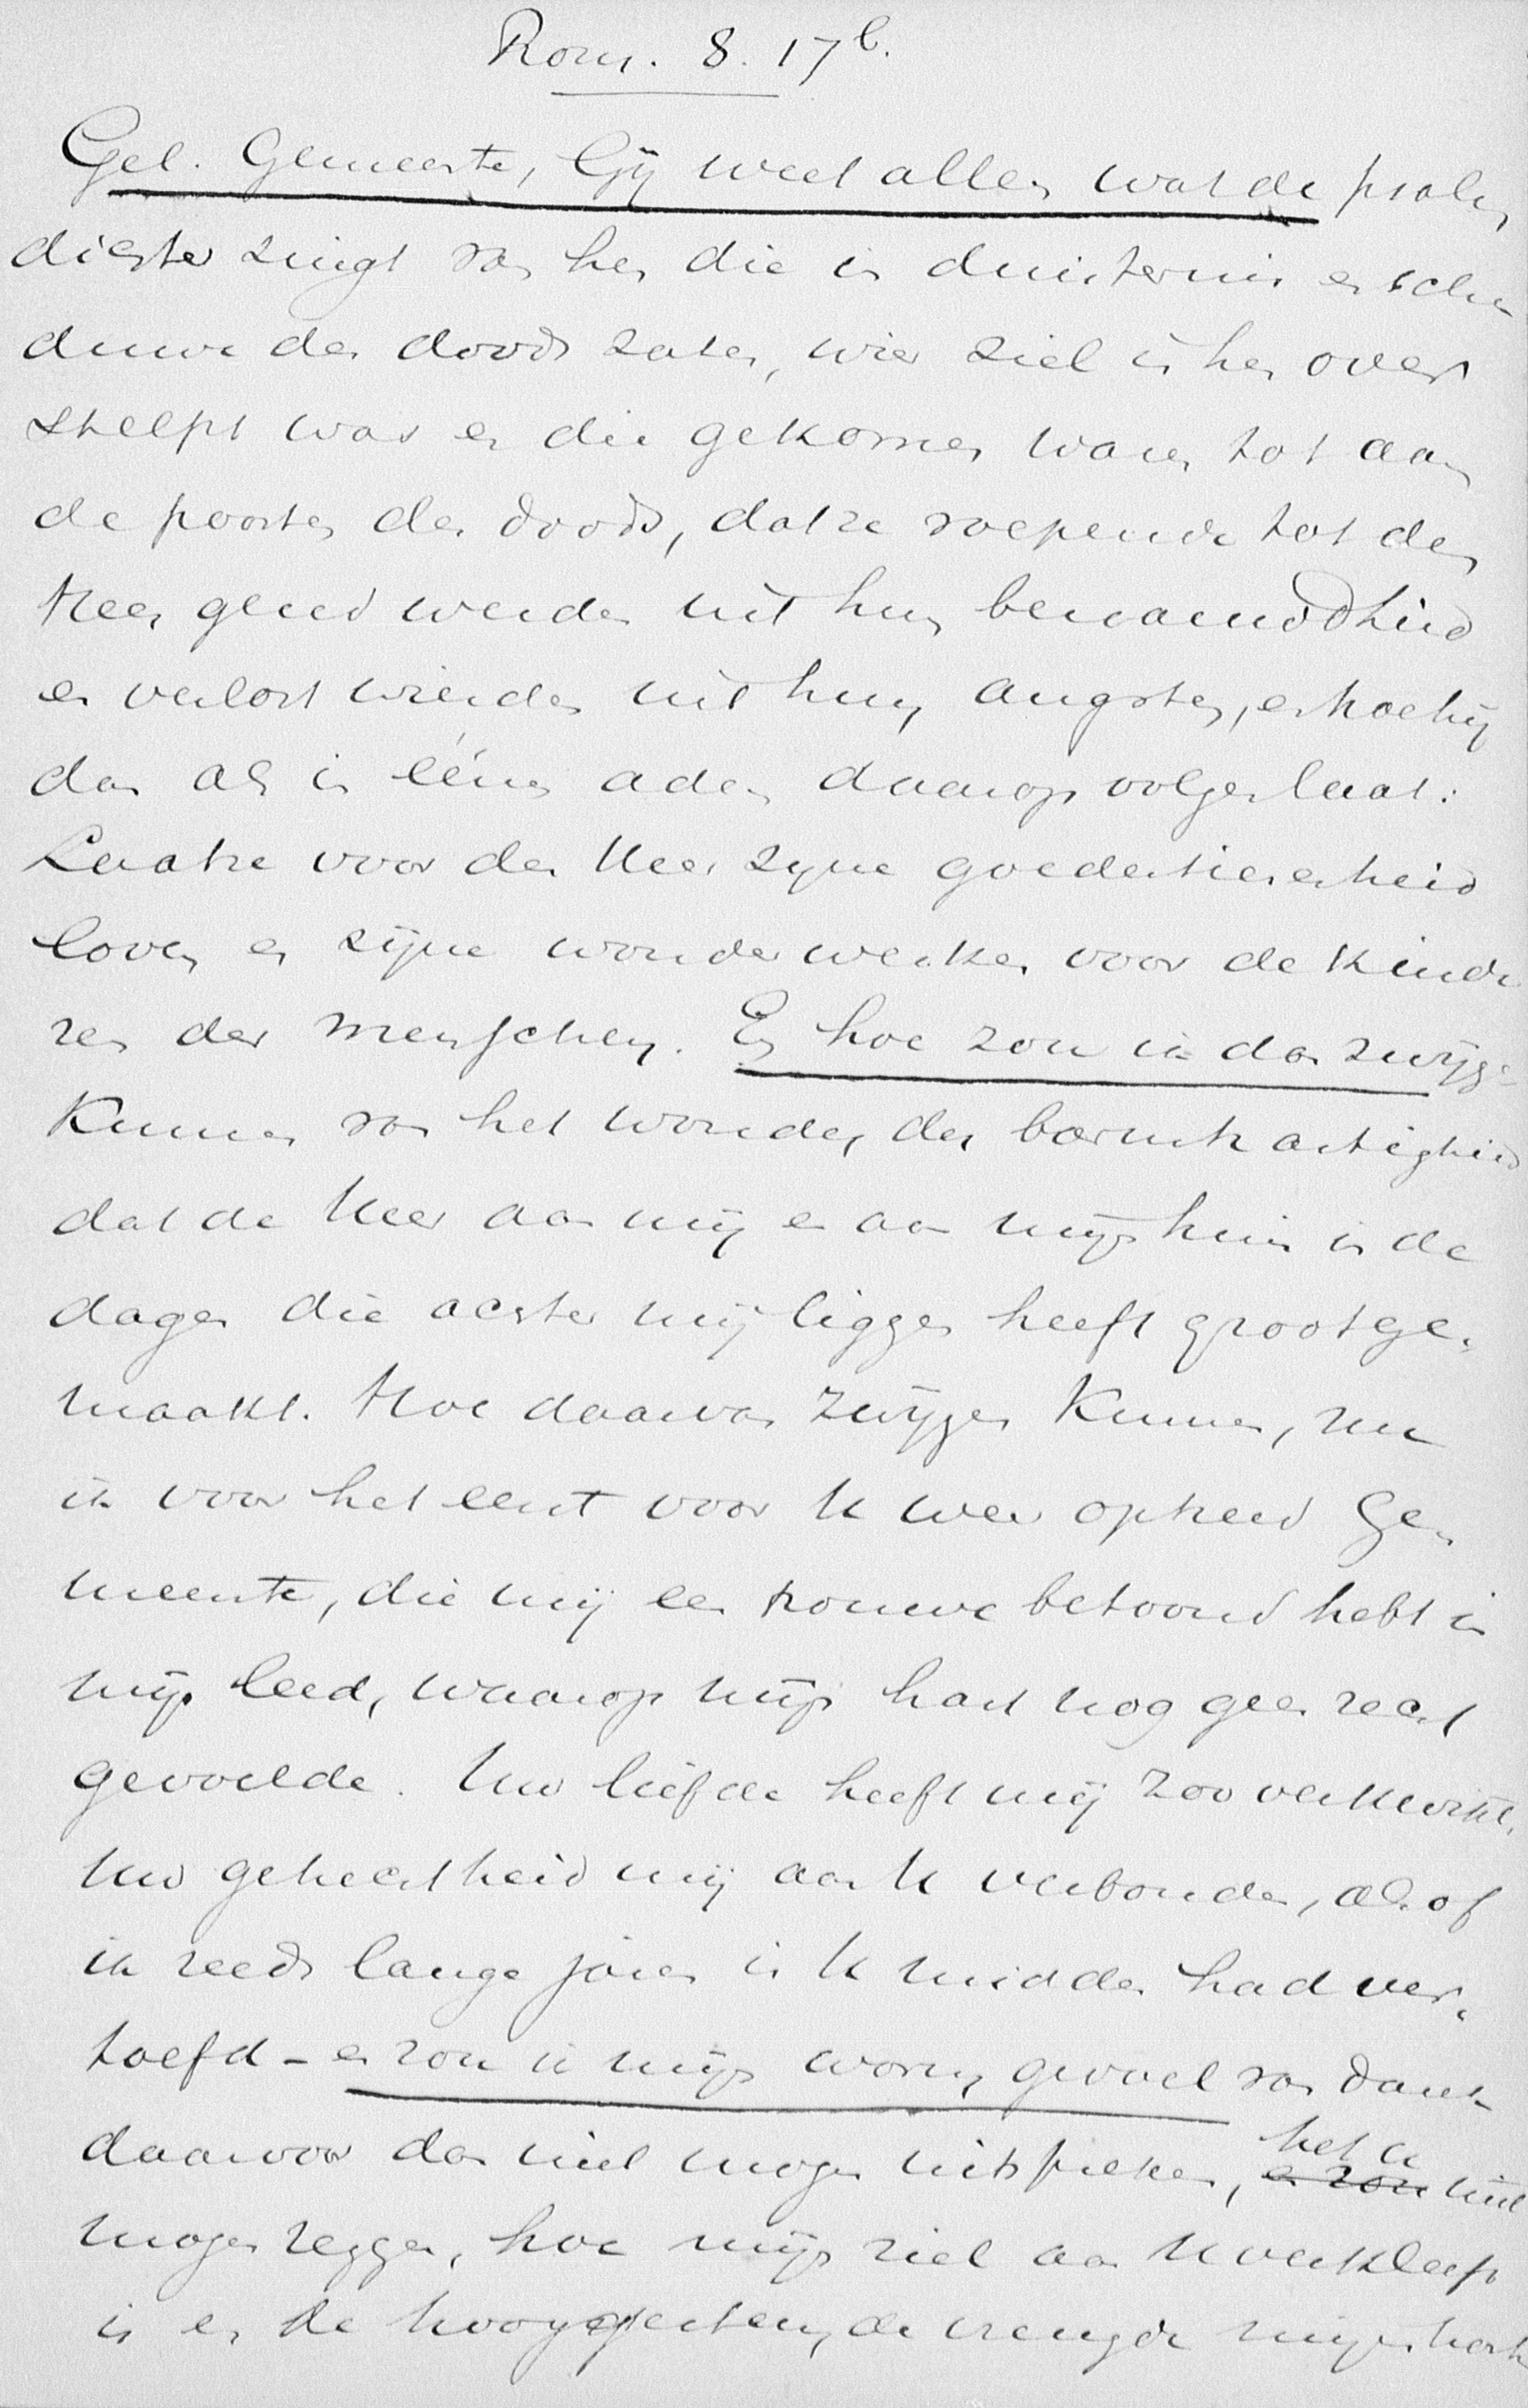 Rom. 8. 17b.
Gel. Gemeente, Gij weet allen wat de psalm
dichter zingt van hen die in duisternis en scha
duwe des doods zaten, wier ziel in hen over
stelpt was en die gekomen waren tot aan
de poorten des doods, dat ze roepende tot den
Heer gered werden uit hun benaauwdheid
en verlost wierden uit hun angsten, en hoe hij
dan als in éénen adem daarop volgen laat:
Laat ze voor den Heer zijne goedertierenheid
loven en zijne wonderwerken voor de kinde
ren der menschen. En hoe zou ik dan zwijgen
kunnen van het wonder der barmhartigheid
dat de Heer aan mij en aan mijn huis in de
dagen die achter mij liggen heeft grootge-
maakt. Hoe daarvan zwijgen kunnen, nu
ik voor het eerst voor U weer optreed Ge-
meente, die mij een trouwe betoond hebt in
mijn leed, waarop mijn hart nog geen recht
gevoelde. Uw liefde heeft mij zoo verkwikt,
Uw gehechtheid mij aan U verbonden, als of
ik reeds lange jaren in U midden had ver-
toefd - en zou ik mijn warm gevoel van dank
daarvoor dan niet mogen uitspreken, en zou het U niet
mogen zeggen, hoe mijn ziel aan U verkleefd
is en de hoogste, de vreugde mijns harten